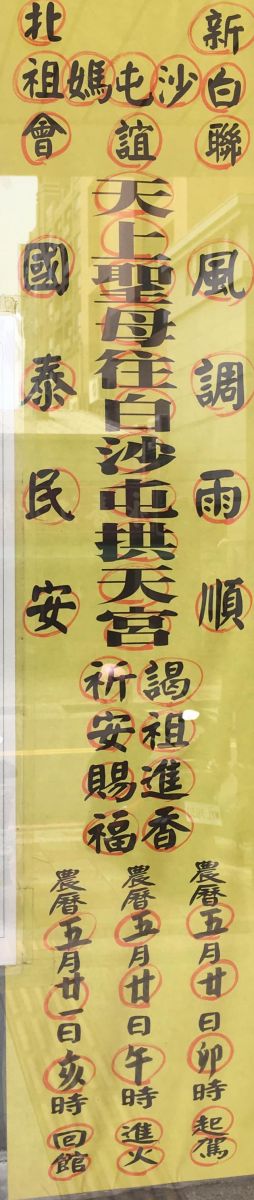 新北
白沙屯媽祖
聯誼會
風調雨順
天上聖母往白沙屯拱天宮
國泰民安
謁祖進香
祈安賜福
農曆五月廿日卯時起駕
農曆五月廿日午時進火
農曆五月廿一日亥時回館